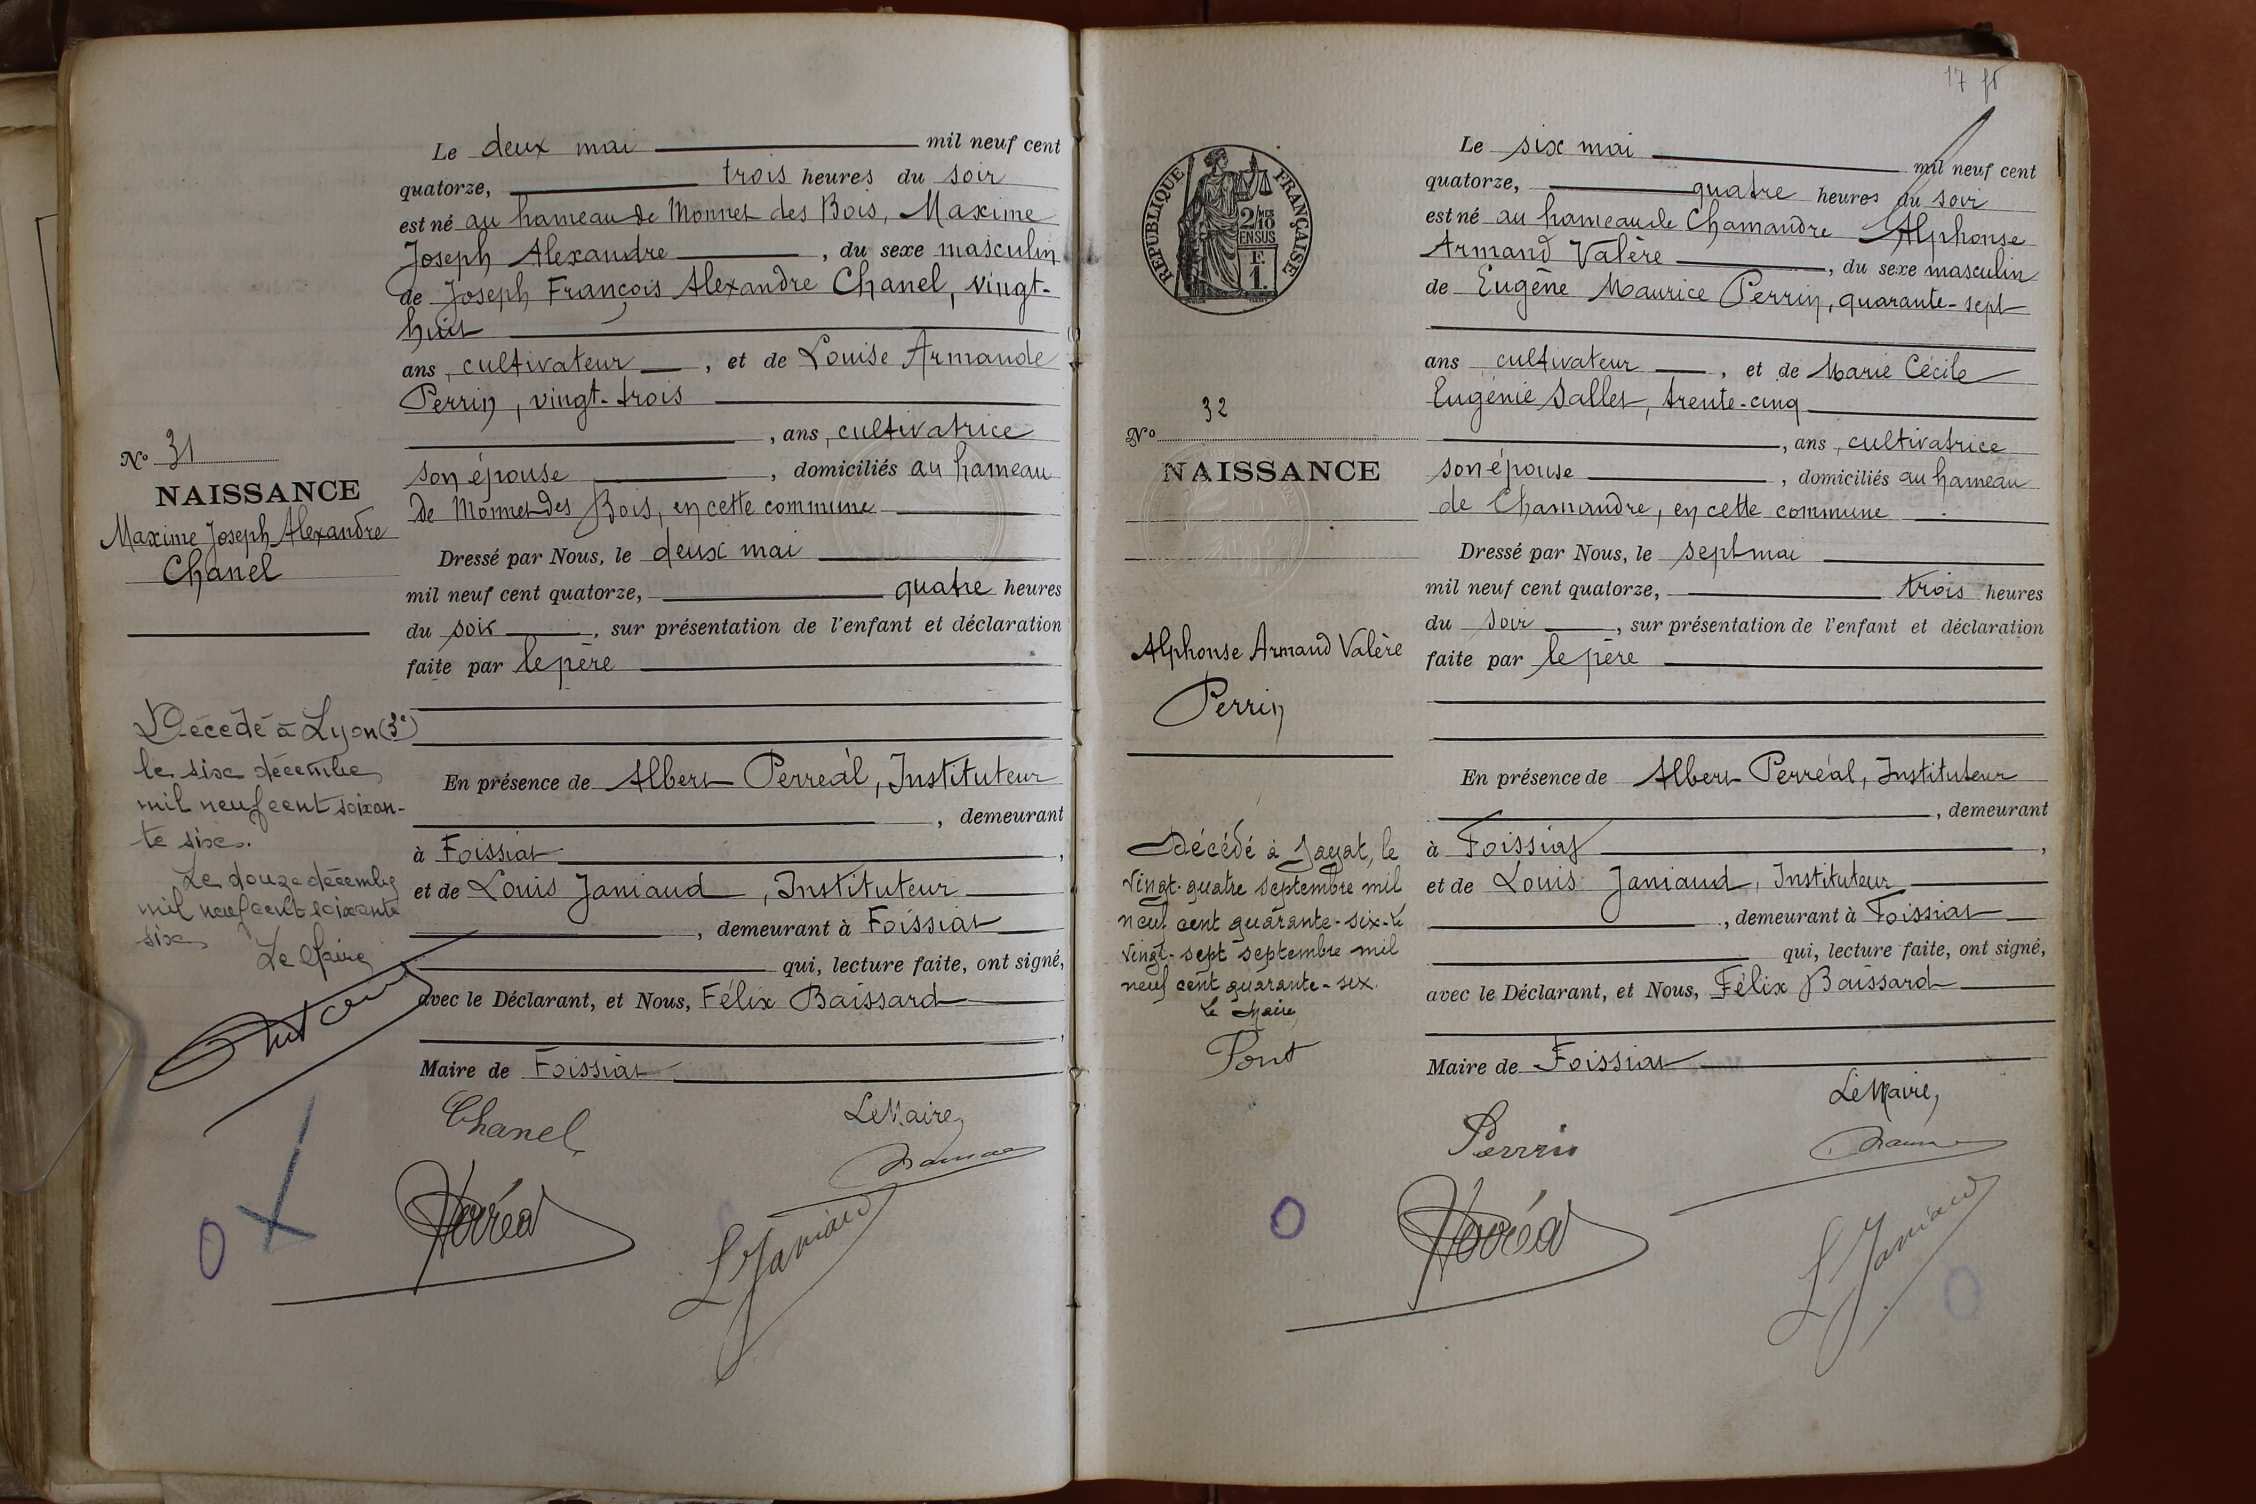 Le deux mai mil neuf cent
quatorze, trois heures du soir
est né au hameau de Monnet des Bois, Maxime
Joseph Alexandre , du sexe masculin
de Joseph François Alexandre Chanel, vingt-
huit
ans, cultivateur , et de Louise Armande
Perrin, vingt-trois
, ans, cultivatrice
son épouse , domiciliés au hameau
de Monnet des Bois, en cette commune
Dressé par Nous, le deux mai
mil neuf cent quatorze, quatre heures
du soir , sur présentation de l'enfant et déclaration
faite par le père
En présence de Albert Perréal, Instituteur
, demeurant
à Foissiat ,
et de Louis Janiaud , Instituteur
, demeurant à Foissiat
qui, lecture faite, ont signé,
avec le Déclarant, et Nous, Félix Baissard
,
Maire de Foissiat
Chanel
Le Maire,
Perréal
L Janiaud
No 31
NAISSANCE
Maxime Joseph Alexandre
Chanel
Décédé à Lyon (3e)
le six décembre
mil neuf cent soixan-
te six.
Le douze décembre
mil neuf cent soixante
six
Le Maire
17
RÉPUBLIQUE FRANÇAISE
2/10 MES
EN SUS
F.
1.
32
No
NAISSANCE
Alphonse Armand Valère
Perrin
Décédé à Jayat, le
vingt-quatre septembre mil
neuf cent quarante-six. Le
vingt-sept septembre mil
neuf cent quarante-six.
Le Maire,
Pont
Le six mai mil neuf cent
quatorze, quatre heures du soir
est né au hameau de Chamandre Alphonse
Armand Valère , du sexe masculin
de Eugène Maurice Perrin, quarante-sept
ans, cultivateur , et de Marie Cécile
Eugénie Sallet, trente-cinq
, ans, cultivatrice
son épouse , domiciliés au hameau
de Chamandre, en cette commune
Dressé par Nous, le sept mai
mil neuf cent quatorze, trois heures
du soir , sur présentation de l'enfant et déclaration
faite par le père
En présence de Albert Perréal, Instituteur
, demeurant
à Foissiat ,
et de Louis Janiaud, Instituteur
, demeurant à Foissiat
qui, lecture faite, ont signé,
avec le Déclarant, et Nous, Félix Baissard
Maire de Foissiat
Le Maire,
Perrin
Perréal
L Janiaud